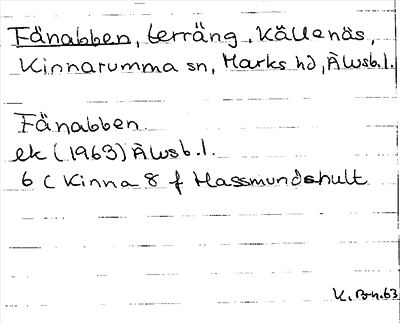 Fänabben, terräng, Källenäs,
Kinnarumma sn, Marks hd, Älvsb.l.
Fänabben.
ek (1963) Älvsb.l.
6 C Kinna 8 f Hassmundshult
K. 63